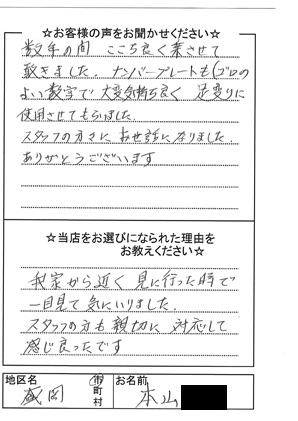 ☆お客様の声をお聞かせください☆
数年の間 ここち良く乗させて
戴きました。ナンバープレートも(ゴロの
よい数字で 大変気持ち良く 足変りに
使用させてもらいました。
スタッフの方々に お世話になりました。
ありがとうございます
☆当店をお選びになられた理由を
お教えください☆
我家から近く 見に行った時で
一目見て 気にいりました。
スタッフの方も 親切に 対応して
感じ良ったです
地区名 盛岡 市町村 お名前 本山